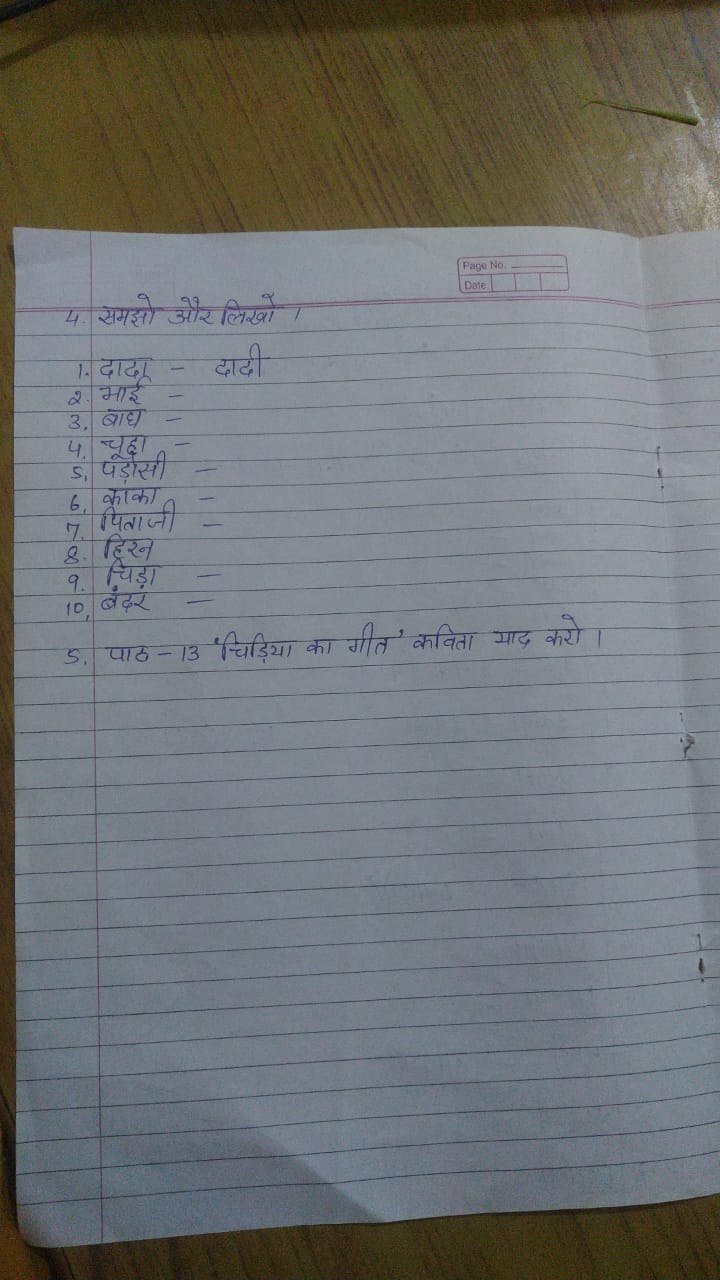 Page No.
Date
4. समझो और लिखो ।
1. दादा - दादी
2. भाई -
3. बाघ -
4. चूहा -
5. पड़ोसी -
6. काका -
7. पिताजी -
8. हिरन
9. चिड़ा -
10. बंदर -
5. पाठ - 13 'चिड़िया का गीत' कविता याद करो ।